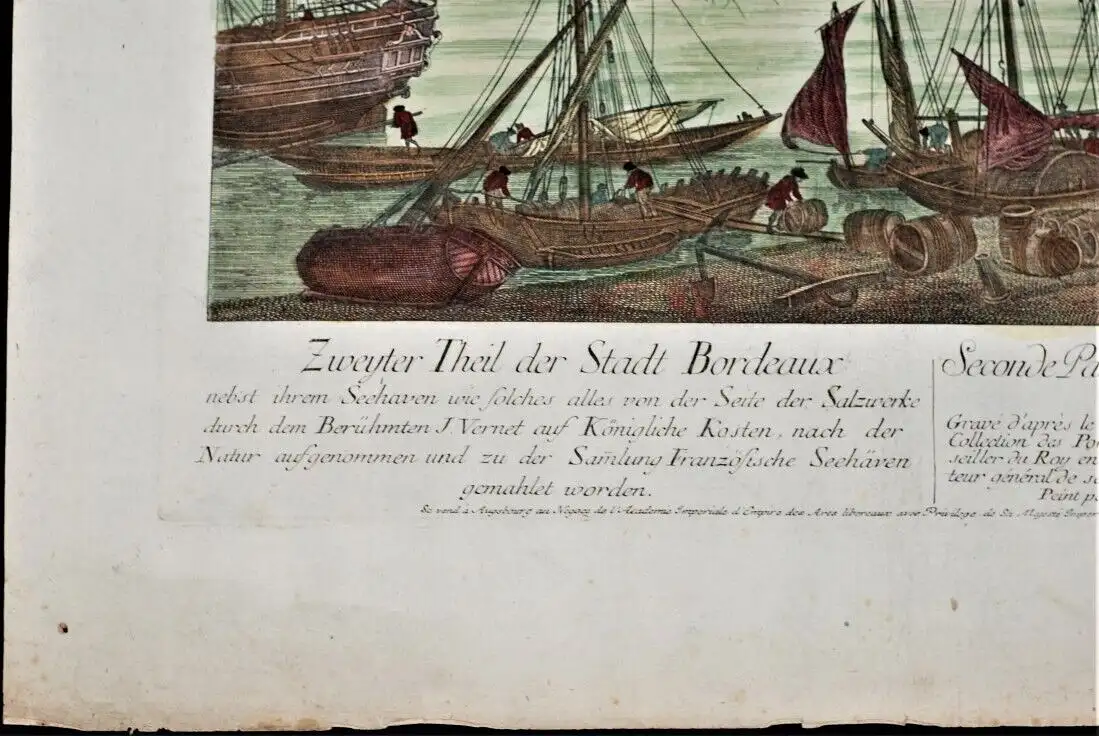 Zweyter Theil der Stadt Bordeaux
nebst ihrem Seehaven wie solches alles von der Seite der Salzwerke
durch dem Berühmten J. Vernet auf Königliche Kosten, nach der
Natur aufgenommen und zu der Sam̄lung Französische Seehäven
gemahlet worden.
Seconde Pa
Gravé d'après le
Collection des Po
seiller du Roy en
teur général de s
Peint p
Se vend à Augsbourg au Negoce de l'Academie Imperiale d'Empire des Arts liberaux avec Privilege de Sa Majesté Imper